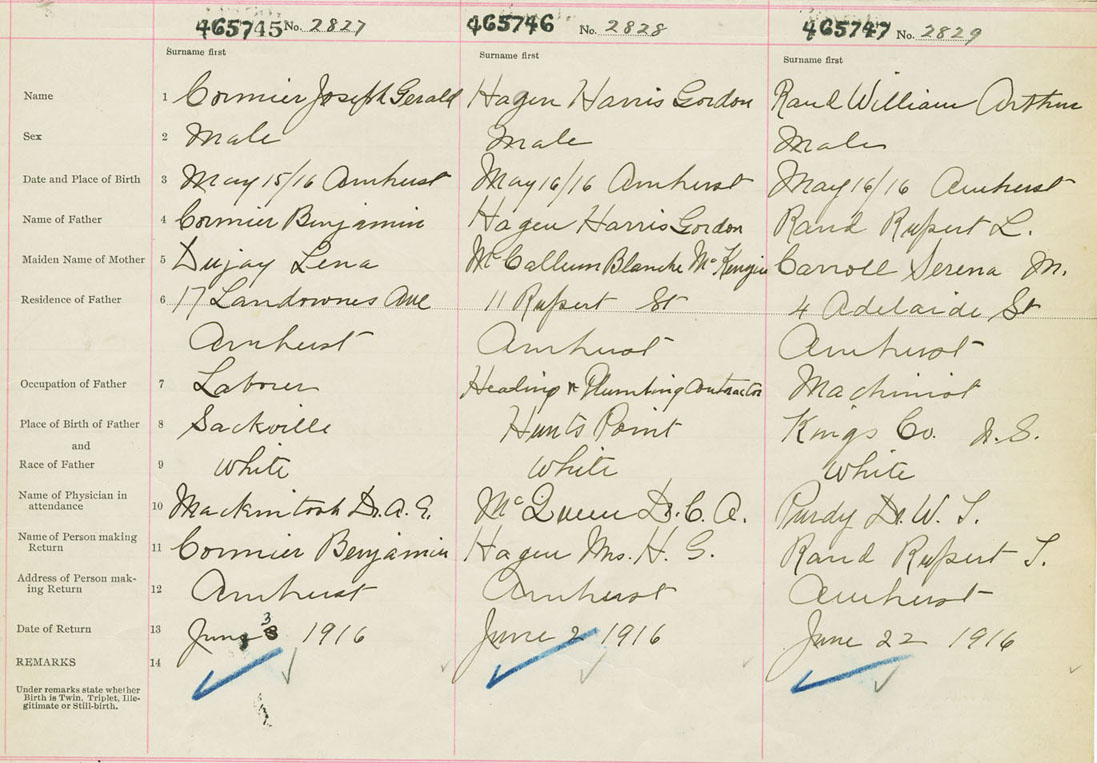 465745 No. 2827 465746 No. 2828 465747 No. 2829
Surname first Surname first Surname first
Name 1 Cormier Joseph Gerald Hagen Harris Gordon Rand William Arthur
Sex 2 Male Male Male
Date and Place of Birth 3 May 15/16 Amherst May 16/16 Amherst May 16/16 Amherst
Name of Father 4 Cormier Benjamin Hagen Harris Gordon Rand Rupert L.
Maiden Name of Mother 5 Dujay Lena McCallum Blanche McKenzie Carroll Serena M.
Residence of Father 6 17 Landownes Ave 11 Rupert St 4 Adelaide St
Amherst Amherst Amherst
Occupation of Father 7 Laborer Heading & Plumbing Contractor Machinist
Place of Birth of Father 8 Sackville Hunts Point Kings Co. N.S.
and
Race of Father 9 White White White
Name of Physician in
attendance 10 Mackintosh Dr. A. E. McQueen Dr. C. A. Purdy Dr. W. T.
Name of Person making
Return 11 Cormier Benjamin Hagen Mrs. H. G. Rand Rupert T.
Address of Person mak-
ing Return 12 Amherst Amherst Amherst
Date of Return 13 June 3 1916 June 2 1916 June 22 1916
REMARKS 14
Under remarks state whether
Birth is Twin, Triplet, Ille-
gitimate or Still-birth.